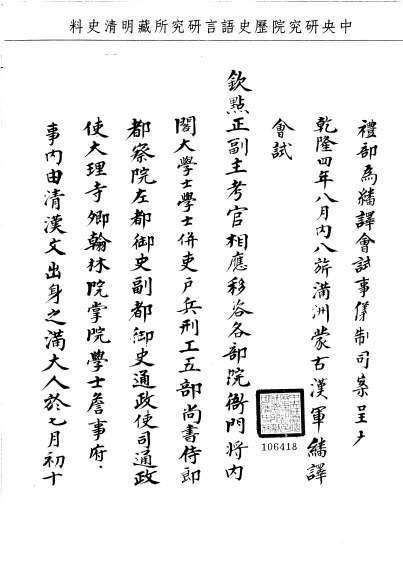 中央研究院歷史語言研究所藏明清史料
禮部為繙譯會試事儀制司案呈
乾隆四年八月內八旂滿洲蒙古漢軍繙譯
會試
欽點正副主考官相應移咨各部院衙門將內
閣大學士學士併吏戶兵刑工五部尚書侍郎
都察院左都御史副都御史通政使司通政
使大理寺卿翰林院掌院學士詹事府
事內由清漢文出身之滿大人於七月初十
106418